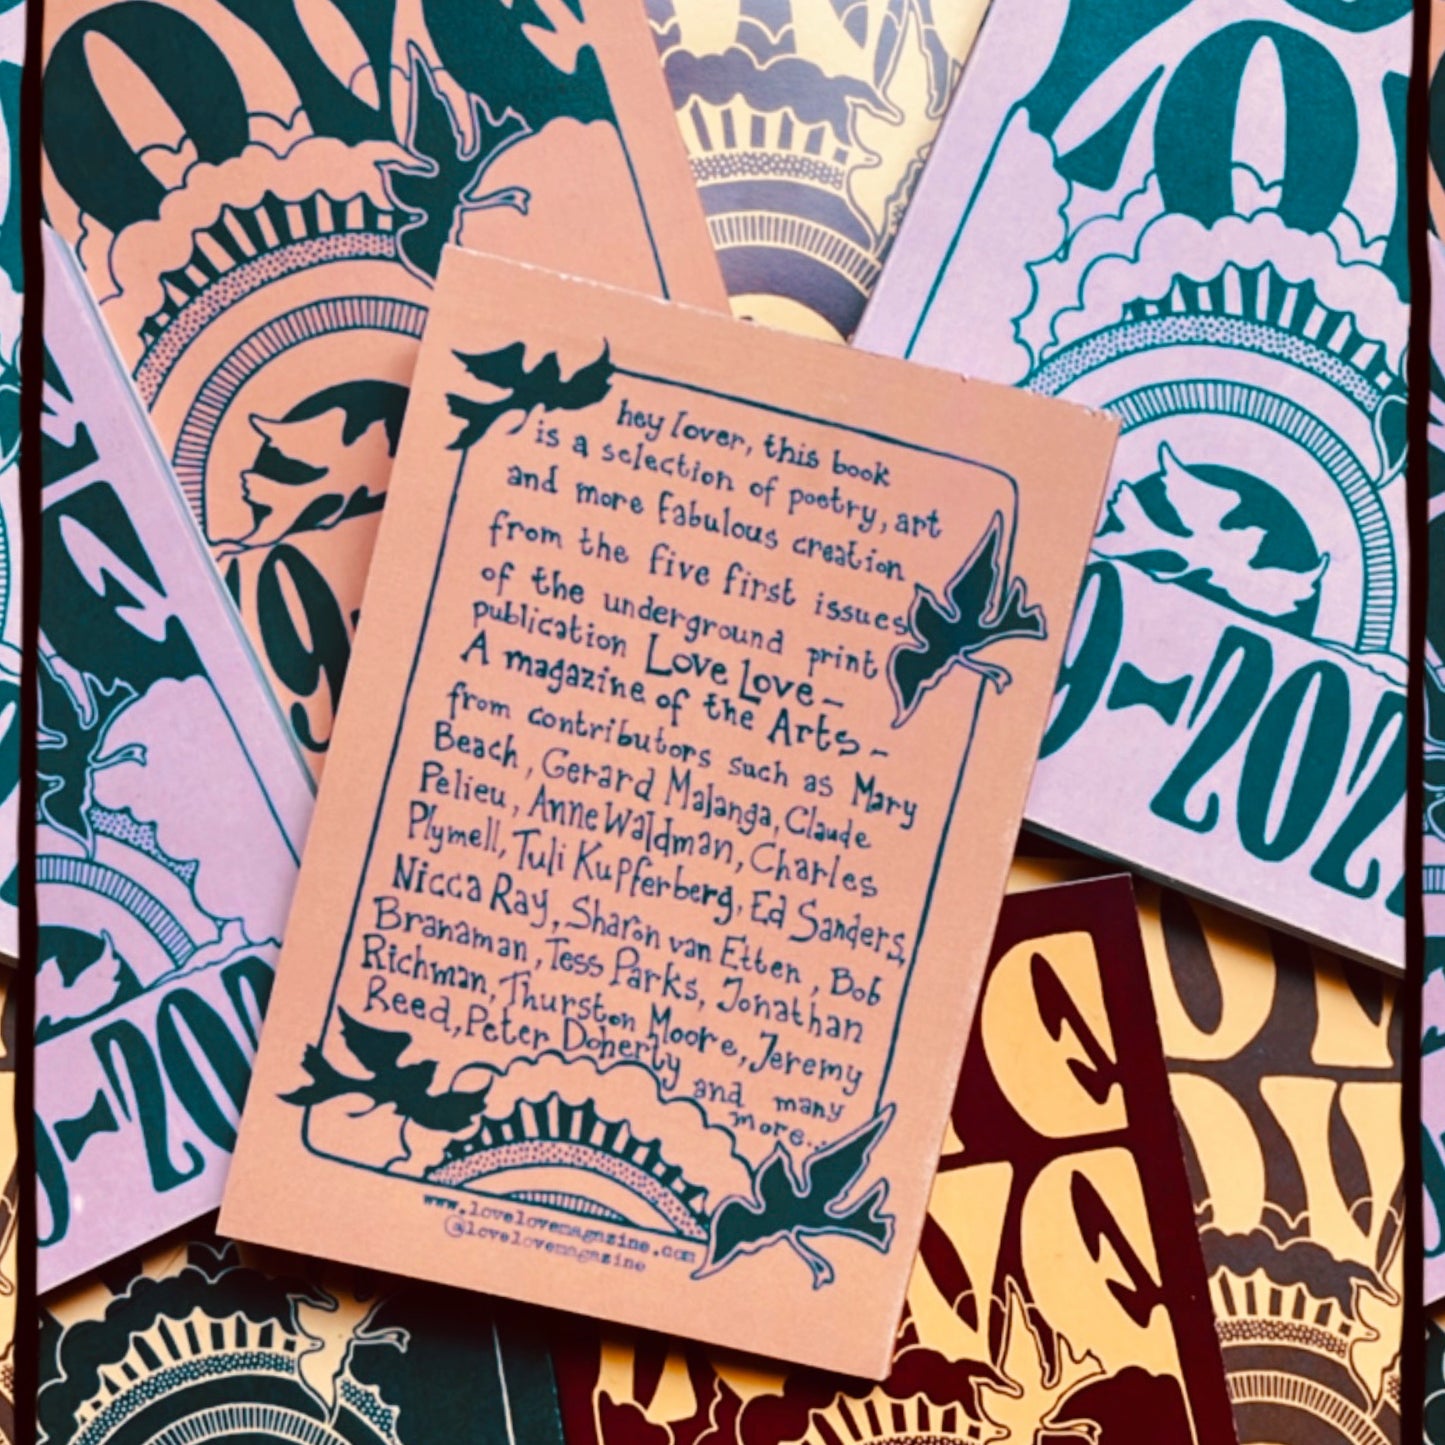 hey lover, this book
is a selection of poetry, art
and more fabulous creation
from the five first issues
of the underground print
publication Love Love –
A magazine of the Arts –
from contributors such as Mary
Beach, Gerard Malanga, Claude
Pelieu, Anne Waldman, Charles
Plymell, Tuli Kupferberg, Ed Sanders,
Nicca Ray, Sharon van Etten, Bob
Branaman, Tess Parks, Jonathan
Richman, Thurston Moore, Jeremy
Reed, Peter Doherty and many
more...
www.lovelovemagazine.com
@lovelovemagazine